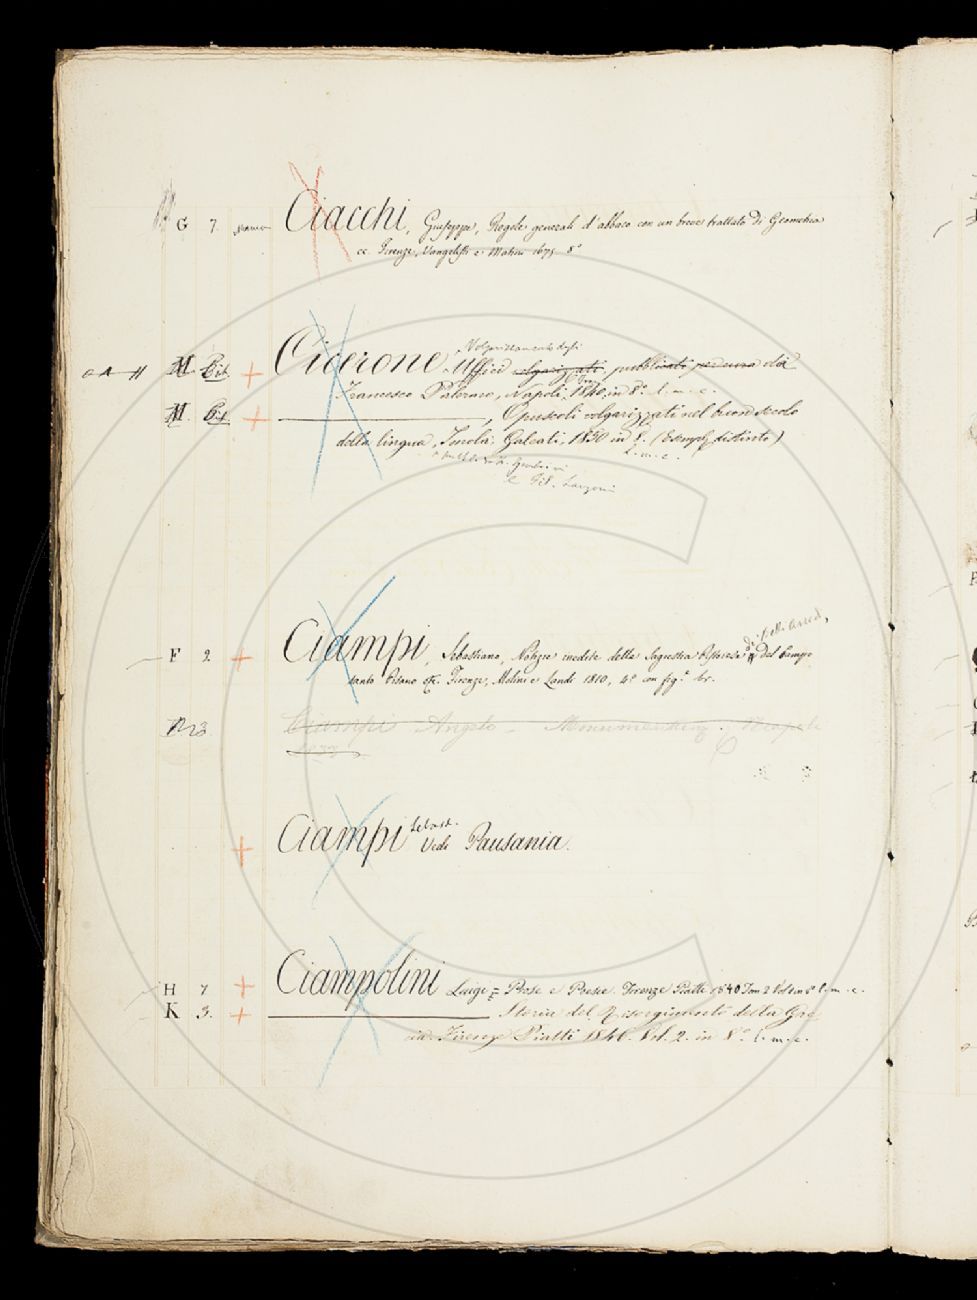 G 7. Ciacchi, Giuseppe, Regole generali d'abbaco con un breve trattato di Geometria
ec. Firenze, Vangelisti e Matini 1675 8°
Volgarizzamento degli
M. Bib. + Cicerone, Uffici volgarizzati, pubblicati per cura di
Francesco Palermo, Napoli, 1840, in 8°. l. m. c.
M. Bib. + , Opuscoli volgarizzati nel buon secolo
della lingua, Imola, Galeati, 1850 in 8. (Esempl. distinto)
l. m. c.
di belli arred,
F 2. + Ciampi, Sebastiano, Notizie inedite della Sagrestia Pistoiese del Campo
santo Pisano etc. Firenze, Molini e Landi 1810, 4° con fig.e br.
Ciampi Angelo - Napoli
+ Ciampi Sebast. Vedi Pausania.
H 7 + Ciampolini Luigi = Prose e Poesie. Firenze Piatti 1840 Tom 2 Vol in 8° l. m. c.
K 3. + Storia del Risorgimento della Gre
cia. Firenze Piatti 1846. Vol. 2. in 8°. l. m. c.